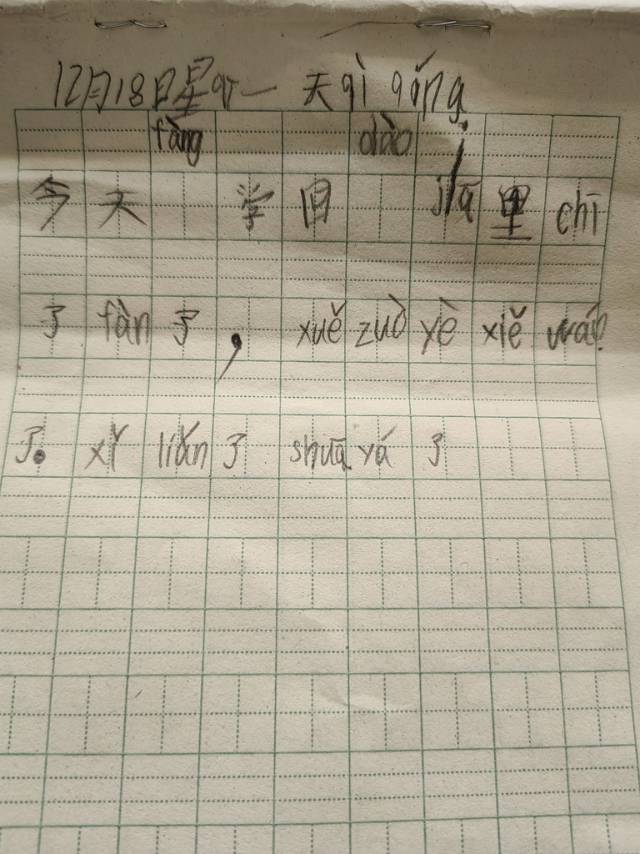 12月18日星qī一 天qì qíng
fàng dào
今天 学回 jiā里chī
了fàn了，xuě zuò yè xiě wán
了。xǐ liǎn了 shuā yá 了